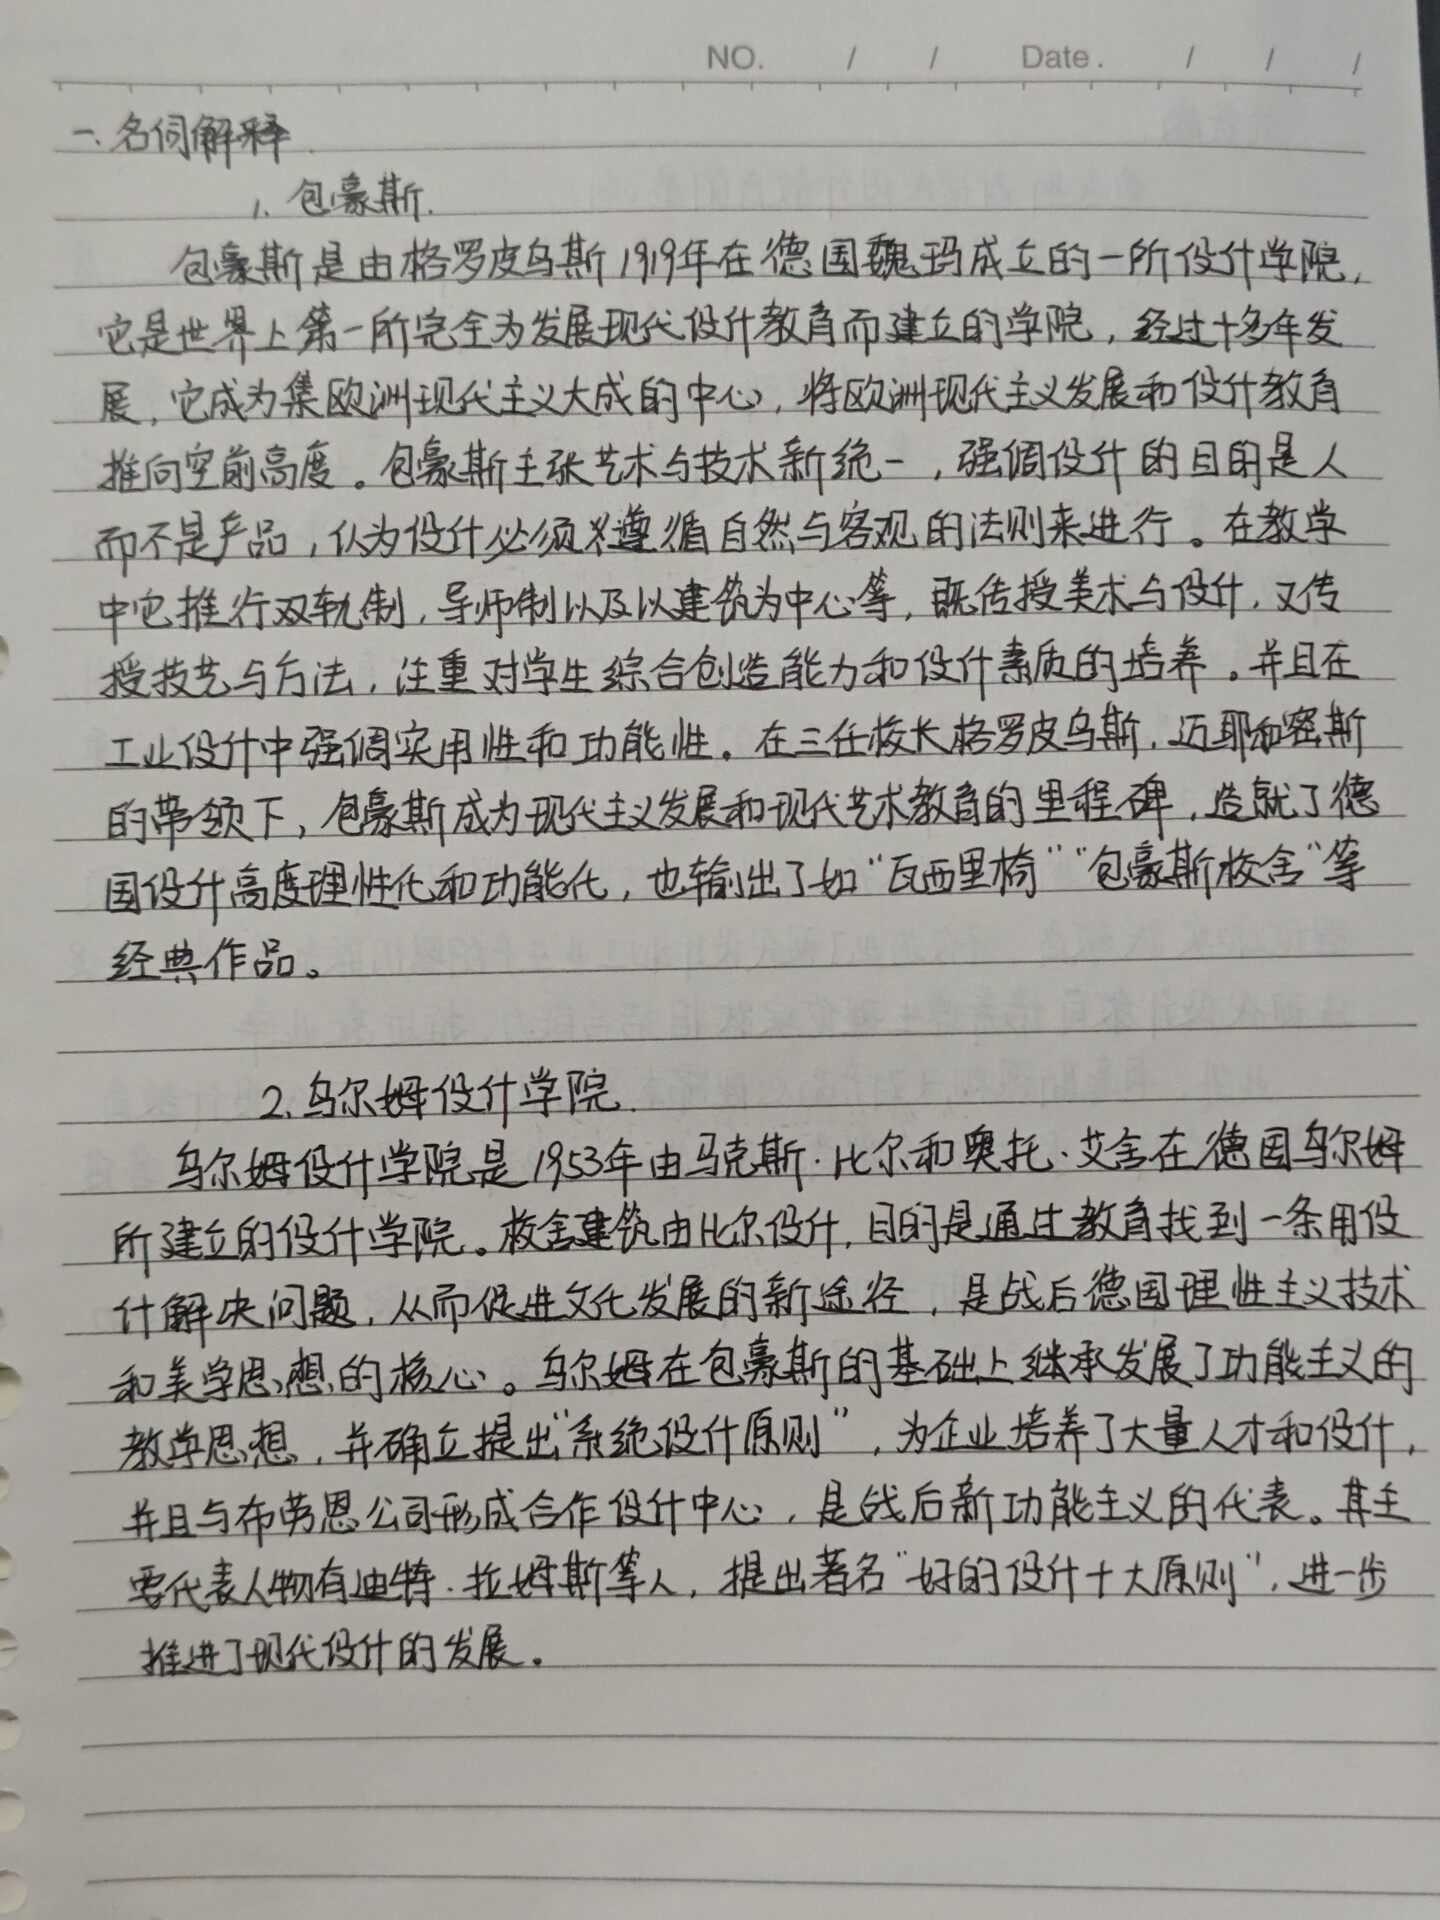 NO. / / Date. / / /
一、名词解释.
1. 包豪斯.
包豪斯是由格罗皮乌斯1919年在德国魏玛成立的一所设计学院,
它是世界上第一所完全为发展现代设计教育而建立的学院, 经过十多年发
展, 它成为集欧洲现代主义大成的中心, 将欧洲现代主义发展和设计教育
推向空前高度。包豪斯主张艺术与技术新统一, 强调设计的目的是人
而不是产品, 认为设计必须遵循自然与客观的法则来进行。在教学
中它推行双轨制, 导师制以及以建筑为中心等, 既传授美术与设计, 又传
授技艺与方法, 注重对学生综合创造能力和设计素质的培养。并且在
工业设计中强调实用性和功能性。在三任校长格罗皮乌斯, 迈耶和密斯
的带领下, 包豪斯成为现代主义发展和现代艺术教育的里程碑, 造就了德
国设计高度理性化和功能化, 也输出了如“瓦西里椅”“包豪斯校舍”等
经典作品。
2. 乌尔姆设计学院.
乌尔姆设计学院是1953年由马克斯·比尔和奥托·艾舍在德国乌尔姆
所建立的设计学院。校舍建筑由比尔设计, 目的是通过教育找到一条用设
计解决问题, 从而促进文化发展的新途径, 是战后德国理性主义技术
和美学思想的核心。乌尔姆在包豪斯的基础上继承发展了功能主义的
教学思想, 并确立提出“系统设计原则”, 为企业培养了大量人才和设计,
并且与布劳恩公司形成合作设计中心, 是战后新功能主义的代表。其主
要代表人物有迪特·拉姆斯等人, 提出著名“好的设计十大原则”, 进一步
推进了现代设计的发展。